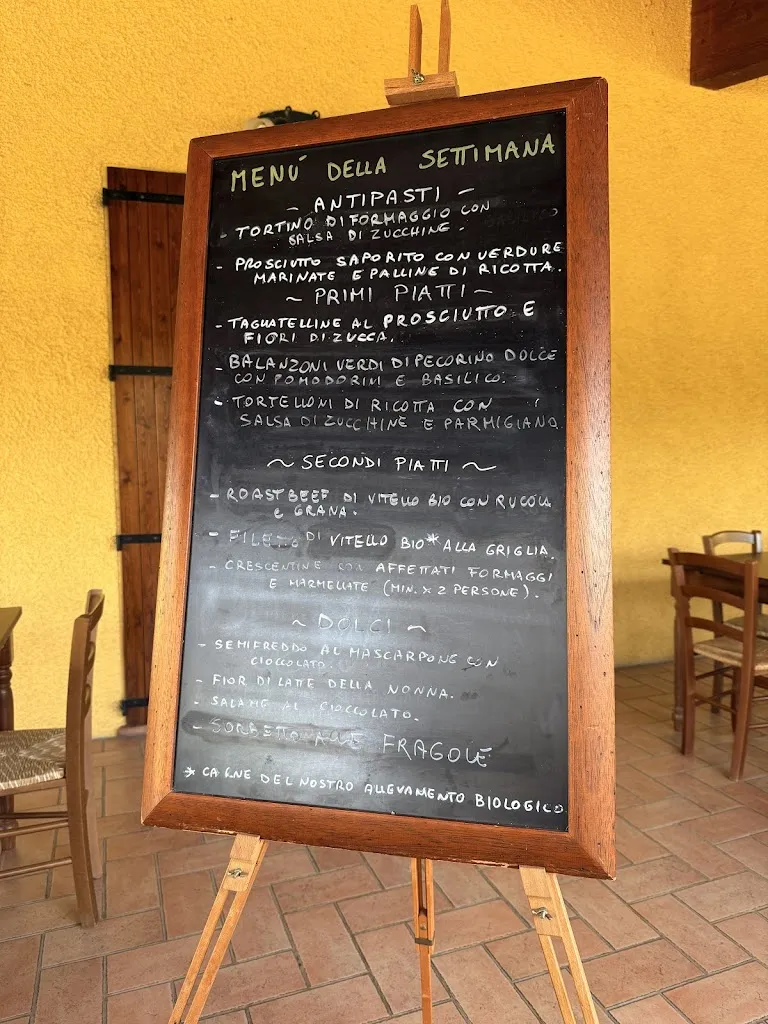 MENÚ DELLA SETTIMANA
~ ANTIPASTI ~
- TORTINO DI FORMAGGIO CON
SALSA DI ZUCCHINE.
- PROSCIUTTO SAPORITO CON VERDURE
MARINATE E PALLINE DI RICOTTA.
~ PRIMI PIATTI ~
- TAGLIATELLINE AL PROSCIUTTO E
FIORI DI ZUCCA.
- BALANZONI VERDI DI PECORINO DOLCE
CON POMODORINI E BASILICO.
- TORTELLONI DI RICOTTA CON
SALSA DI ZUCCHINE E PARMIGIANO
~ SECONDI PIATTI ~
- ROAST BEEF DI VITELLO BIO CON RUCOLA
E GRANA.
- FILETTO DI VITELLO BIO* ALLA GRIGLIA.
- CRESCENTINE CON AFFETTATI FORMAGGI
E MARMELLATE (MIN. X 2 PERSONE).
~ DOLCI ~
- SEMIFREDDO AL MASCARPONE CON
CIOCCOLATO.
- FIOR DI LATTE DELLA NONNA.
- SALAME AL CIOCCOLATO.
- SORBETTO ALLE FRAGOLE
* CARNE DEL NOSTRO ALLEVAMENTO BIOLOGICO